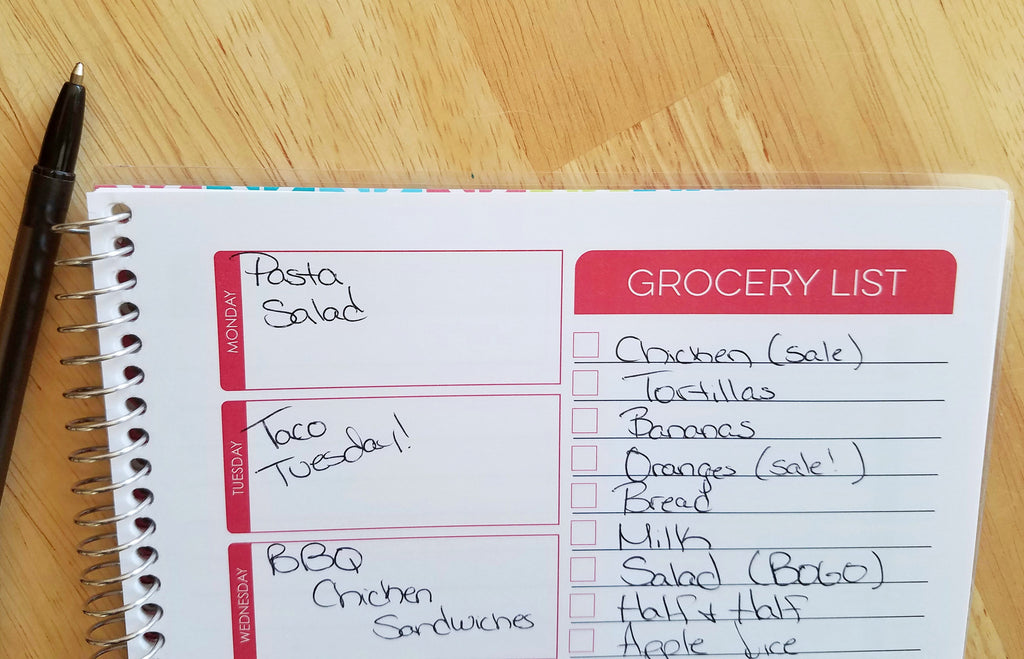 MONDAY
Pasta
Salad
TUESDAY
Taco
Tuesday!
WEDNESDAY
BBQ
Chicken
Sandwiches
GROCERY LIST
Chicken (sale)
Tortillas
Bananas
Oranges (sale!)
Bread
Milk
Salad (BOGO)
Half & Half
Apple Juice